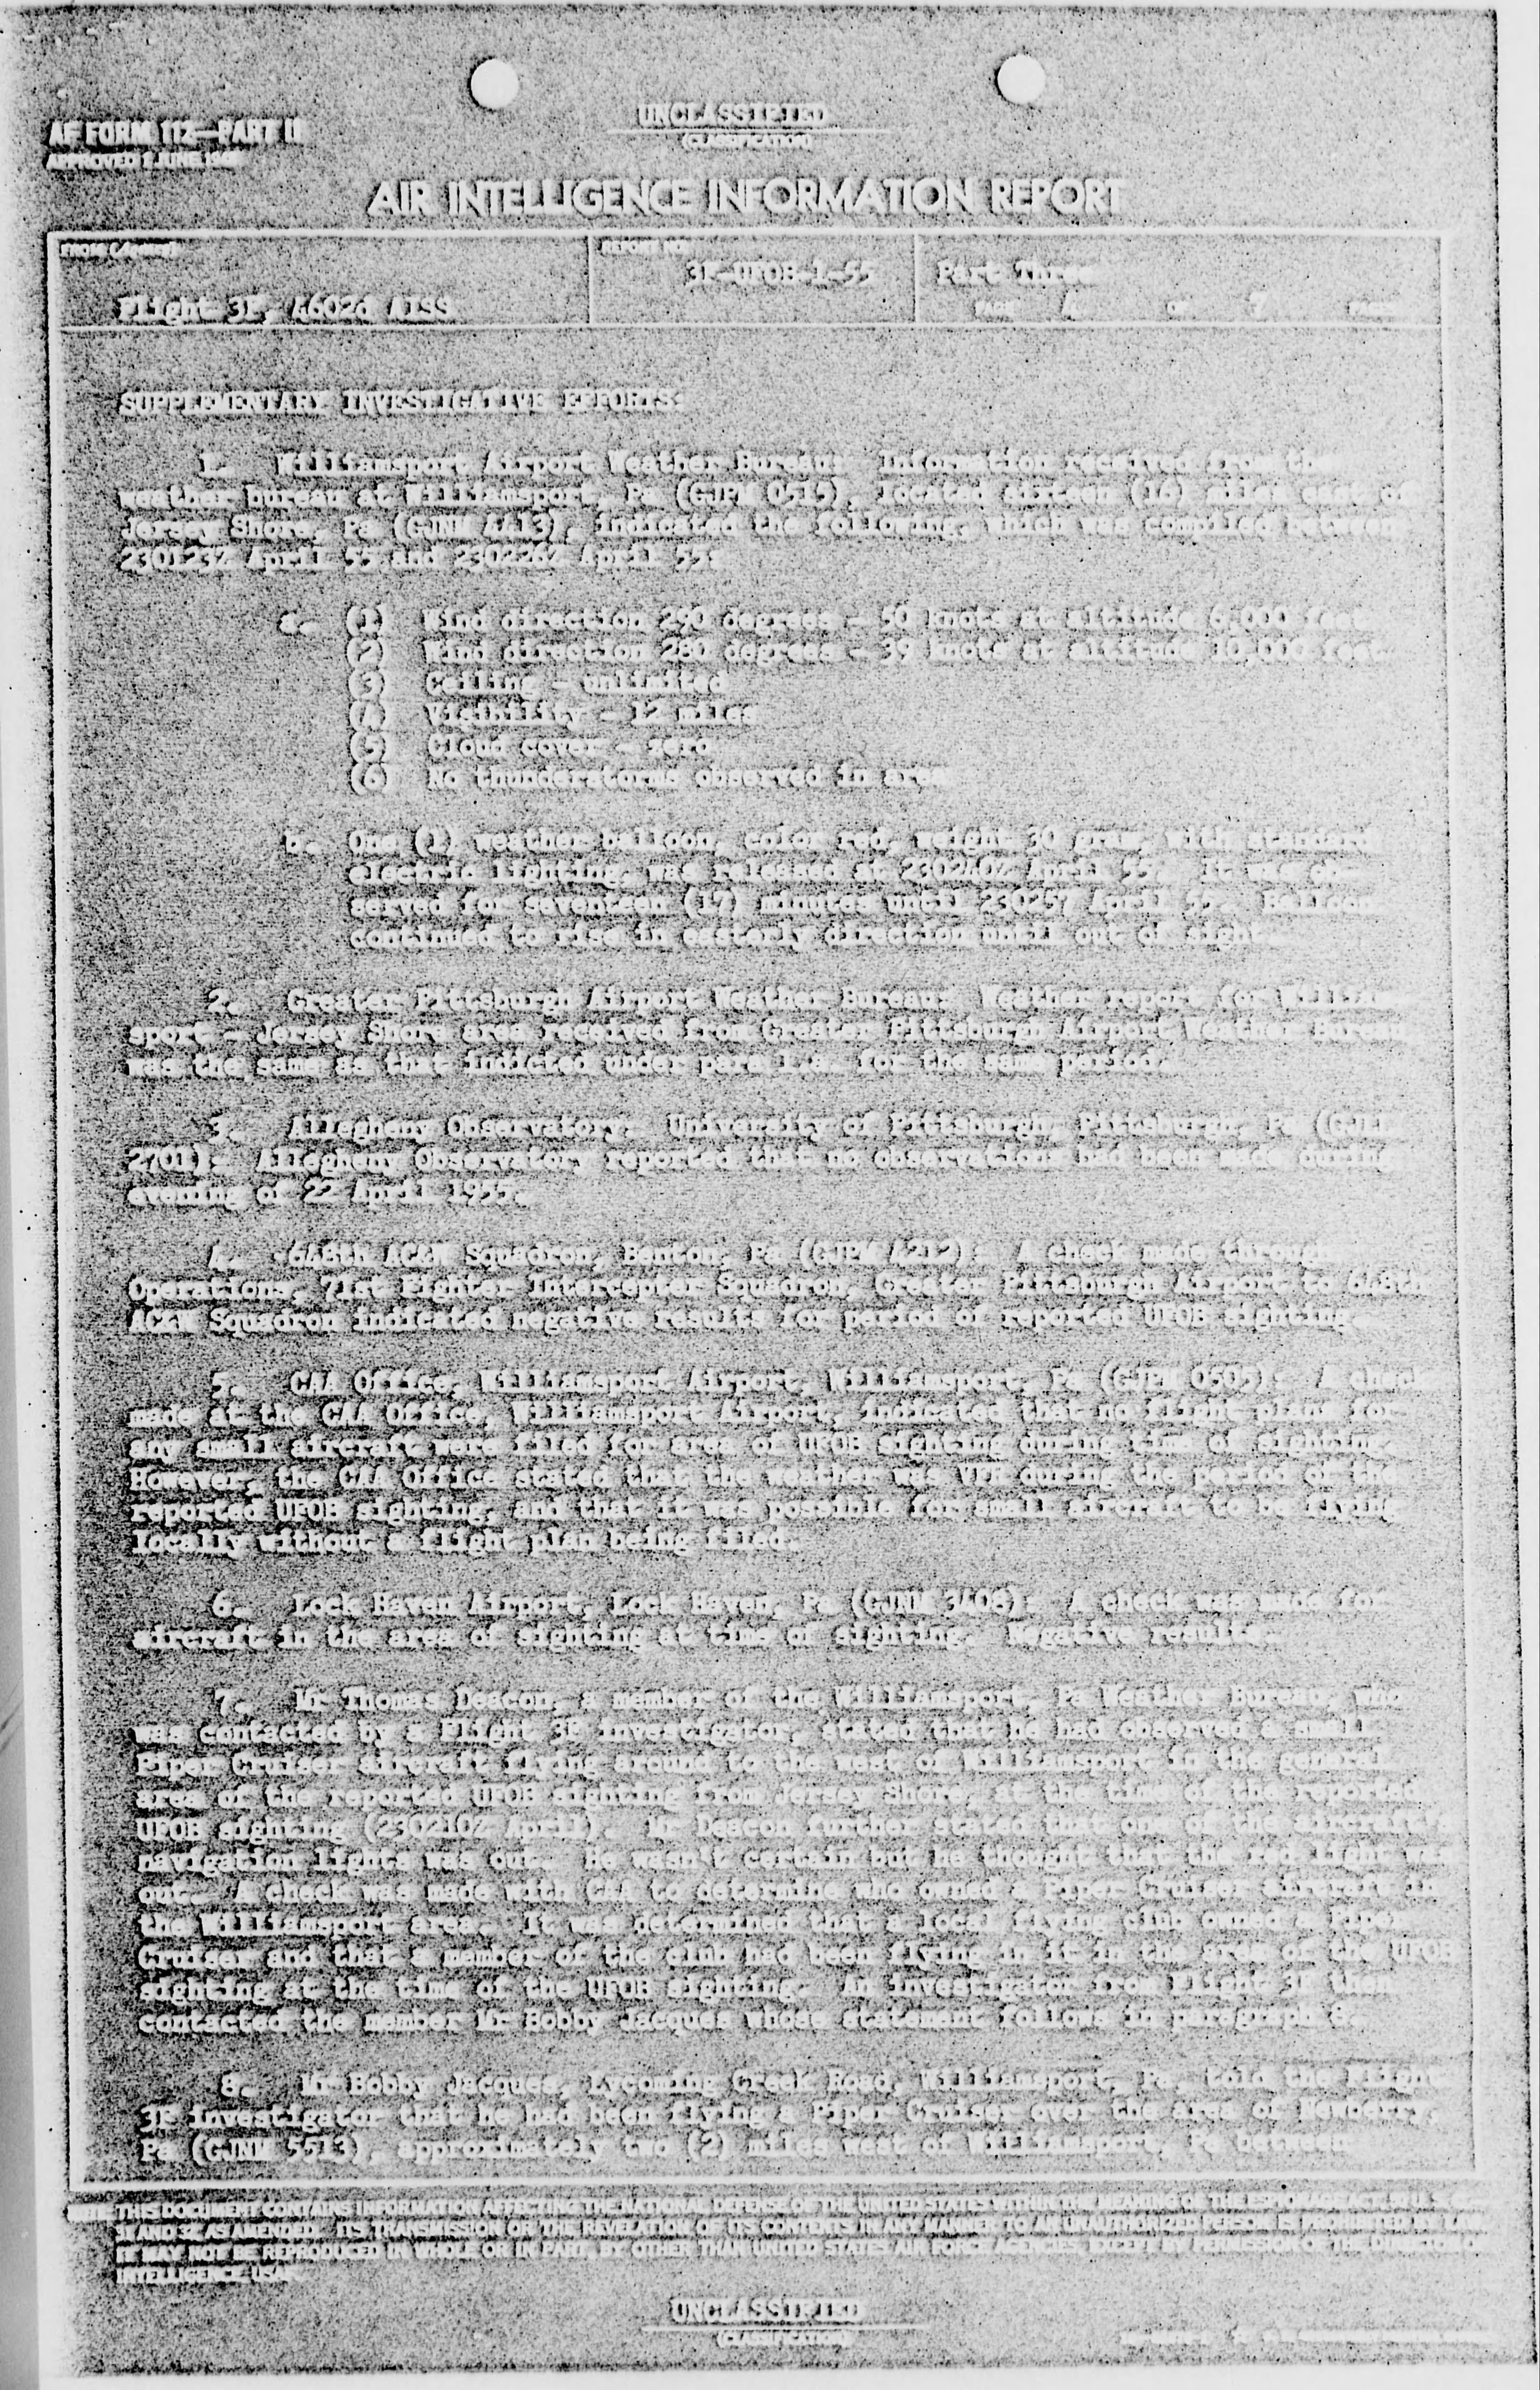 UNCLASSIFIED
(CLASSIFICATION)
AF FORM 112—PART II
APPROVED 1 JUNE 1948
AIR INTELLIGENCE INFORMATION REPORT
FROM (AGENCY)
REPORT NO.
3E-UFOB-1-55
Part Three
Flight 3E, 4602d AISS
PAGE 4 OF PAGES
SUPPLEMENTARY INVESTIGATIVE EFFORTS:
1. Williamsport Airport Weather Bureau: Information received from the
weather bureau at Williamsport, Pa (GJPM 0515), located sixteen (16) miles east of
Jersey Shore, Pa (GJNM 4413), indicated the following, which was compiled between
230123Z April 55 and 230226Z April 55:
a. (1) Wind direction 290 degrees - 50 knots at altitude 6,000 feet
(2) Wind direction 280 degrees - 39 knots at altitude 10,000 feet
(3) Ceiling - unlimited
(4) Visibility - 12 miles
(5) Cloud cover - zero
(6) No thunderstorms observed in area
b. One (1) weather balloon, color red, weight 30 gram, with standard
electric lighting, was released at 230240Z April 55. It was ob-
served for seventeen (17) minutes until 230257 April 55. Balloon
continued to rise in easterly direction until out of sight.
2. Greater Pittsburgh Airport Weather Bureau: Weather report for William-
sport - Jersey Shore area received from Greater Pittsburgh Airport Weather Bureau
was the same as that indicated under para 1.a. for the same period.
3. Allegheny Observatory, University of Pittsburgh, Pittsburgh, Pa
2701): Allegheny Observatory reported that no observations had been made during
evening of 22 April 1955.
4. 648th AC&W Squadron, Benton, Pa (GJPM 4212): A check made through
Operations, 71st Fighter Interceptor Squadron, Greater Pittsburgh Airport to 648th
AC&W Squadron indicated negative results for period of reported UFOB sighting.
5. CAA Office, Williamsport Airport, Williamsport, Pa (GJPM 0505): A check
made at the CAA Office, Williamsport Airport, indicated that no flight plans for
any small aircraft were filed for area of UFOB sighting during time of sighting.
However, the CAA Office stated that the weather was VFR during the period of the
reported UFOB sighting, and that it was possible for small aircraft to be flying
locally without a flight plan being filed.
6. Lock Haven Airport, Lock Haven, Pa (GJNM 3408): A check was made for
aircraft in the area of sighting at time of sighting. Negative results.
7. Mr Thomas Deacon, a member of the Williamsport, Pa Weather Bureau, who
was contacted by a Flight 3E investigator, stated that he had observed a small
Piper Cruiser aircraft flying around to the west of Williamsport in the general
area of the reported UFOB sighting from Jersey Shore, at the time of the reported
UFOB sighting (230210Z April). Mr Deacon further stated that one of the aircraft's
navigation lights was out. He wasn't certain but he thought that the red light was
out. A check was made with CAA to determine who owned a Piper Cruiser aircraft in
the Williamsport area. It was determined that a local flying club owned a Piper
Cruiser and that a member of the club had been flying in it in the area of the UFOB
sighting at the time of the UFOB sighting. An investigator from Flight 3E then
contacted the member Mr Bobby Jacques whose statement follows in paragraph 8.
8. Mr Bobby Jacques, Lycoming Creek Road, Williamsport, Pa, told the Flight
3E investigator that he had been flying a Piper Cruiser over the area of Newberry,
Pa (GJNM 5513), approximately two (2) miles west of Williamsport, Pa between
NOTE: THIS DOCUMENT CONTAINS INFORMATION AFFECTING THE NATIONAL DEFENSE OF THE UNITED STATES WITHIN THE MEANING OF THE ESPIONAGE ACT, 50 U.S.C.
31 AND 32, AS AMENDED. ITS TRANSMISSION OR THE REVELATION OF ITS CONTENTS IN ANY MANNER TO AN UNAUTHORIZED PERSON IS PROHIBITED BY LAW.
IT MAY NOT BE REPRODUCED IN WHOLE OR IN PART, BY OTHER THAN UNITED STATES AIR FORCE AGENCIES, EXCEPT BY PERMISSION OF THE DIRECTOR OF
INTELLIGENCE, USAF.
UNCLASSIFIED
(CLASSIFICATION)